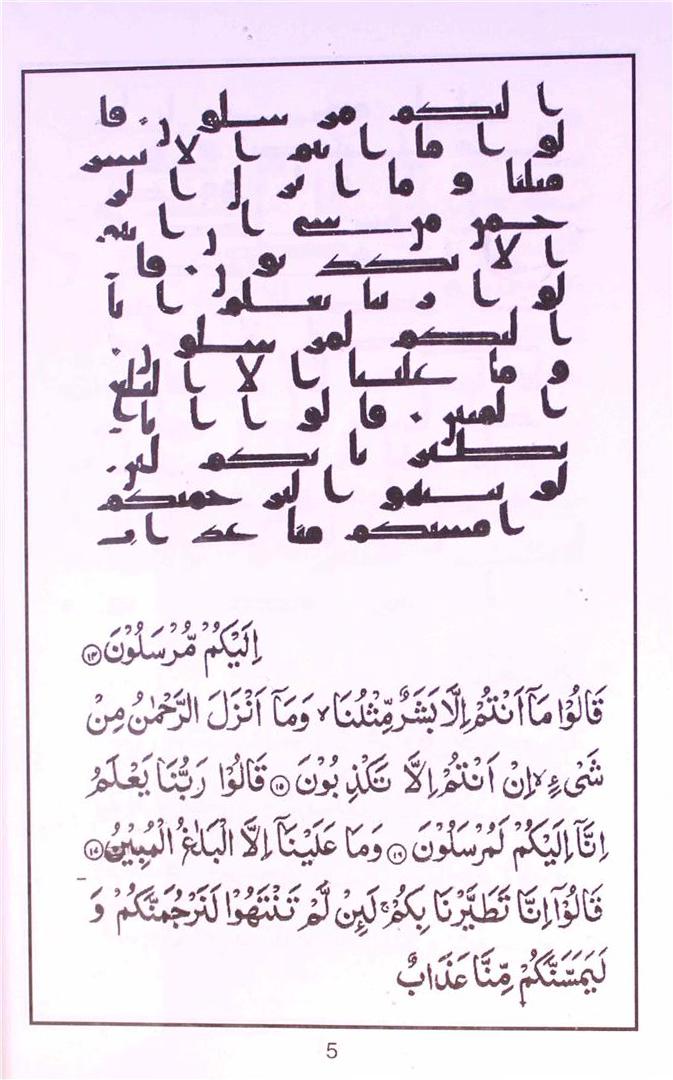 اليكم مرسلون قا
لوا ما انتم الا بشر
مثلنا و ما انزل الر
حمن من شى ان انتم
الا تكذبون قا
لوا ربنا يعلم انا
اليكم لمرسلون
و ما علينا الا البلغ
المبين قالوا انا
تطيرنا بكم لئن
لم تنتهوا لنرجمنكم
و ليمسنكم منا عذاب
اِلَيْكُمْ مُّرْسَلُوْنَ ۝۱۴
قَالُوْا مَاۤ اَنْتُمْ اِلَّا بَشَرٌ مِّثْلُنَا ۙ وَمَاۤ اَنْزَلَ الرَّحْمٰنُ مِنْ
شَیْءٍ ۙ اِنْ اَنْتُمْ اِلَّا تَكْذِبُوْنَ ۝۱۵ قَالُوْا رَبُّنَا يَعْلَمُ
اِنَّاۤ اِلَيْكُمْ لَمُرْسَلُوْنَ ۝۱۶ وَمَا عَلَيْنَاۤ اِلَّا الْبَلٰغُ الْمُبِيْنُ ۝۱۷
قَالُوْۤا اِنَّا تَطَيَّرْنَا بِكُمْ ۚ لَىِٕنْ لَّمْ تَنْتَهُوْا لَنَرْجُمَنَّكُمْ وَ
لَيَمَسَّنَّكُمْ مِّنَّا عَذَابٌ
5